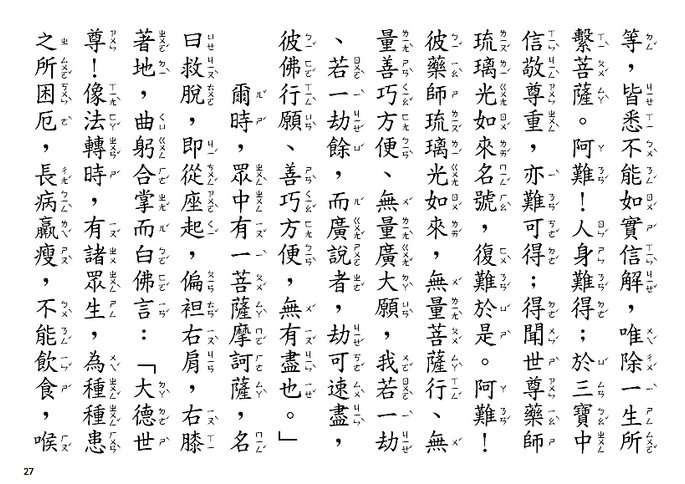 等，皆悉不能如實信解，唯除一生所
繫菩薩。阿難！人身難得；於三寶中
信敬尊重，亦難可得；得聞世尊藥師
琉璃光如來名號，復難於是。阿難！
彼藥師琉璃光如來，無量菩薩行、無
量善巧方便、無量廣大願，我若一劫
、若一劫餘，而廣說者，劫可速盡，
彼佛行願、善巧方便，無有盡也。」
爾時，眾中有一菩薩摩訶薩，名
曰救脫，即從座起，偏袒右肩，右膝
著地，曲躬合掌而白佛言：「大德世
尊！像法轉時，有諸眾生，為種種患
之所困厄，長病羸瘦，不能飲食，喉
27